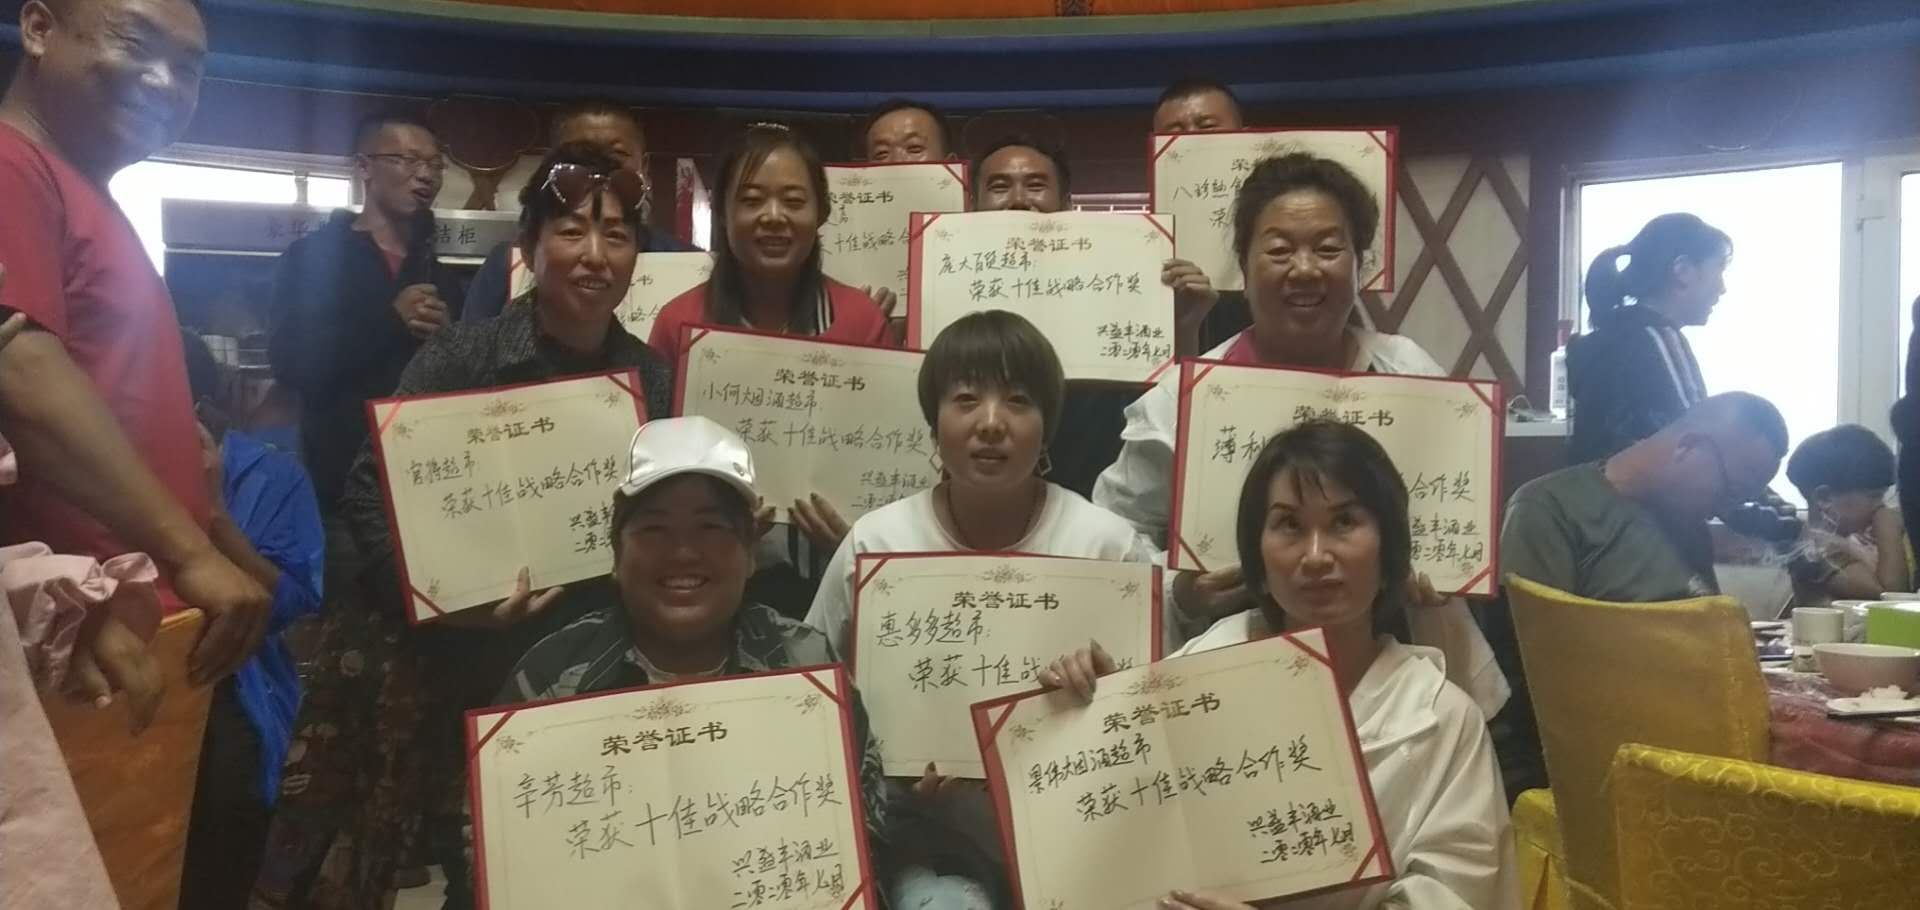 荣誉证书
八珍
荣
荣誉证书
十佳战略合
洁柜
证书
荣誉证书
庞大百货超市：
荣获十佳战略合作奖
兴益丰酒业
二零二零年七月
荣誉证书
小何烟酒超市：
荣获十佳战略合作奖
兴益丰酒业
二零二零
荣誉证书
宫特超市
荣获十佳战略合作奖
兴益丰
二零二
荣誉证书
薄利
合作奖
益丰酒业
零二零年七月
荣誉证书
惠多多超市：
荣获十佳战略合作奖
荣誉证书
辛芳超市：
荣获十佳战略合作奖
兴益丰酒业
二零二零年七月
荣誉证书
景伟烟酒超市
荣获十佳战略合作奖
兴益丰酒业
二零二零年七月